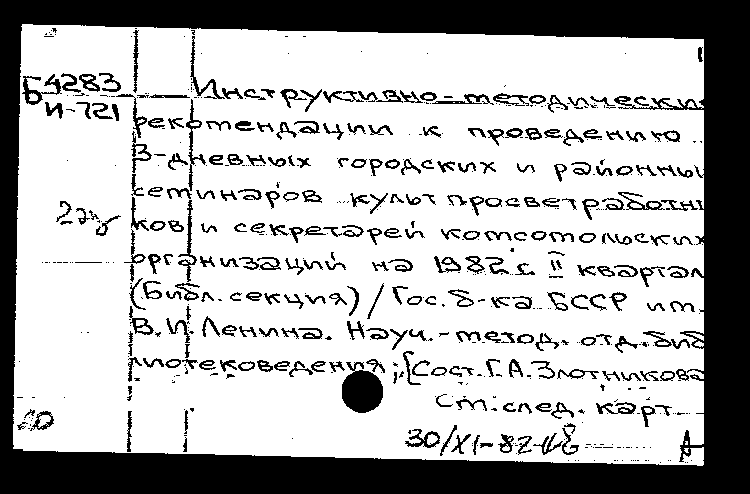 Б4283
И-721
Инструктивно-методические
рекомендации к проведению
3-дневных городских и районны
семинаров культпросветработни
ков и секретарей комсомольских
2 эк
организаций на 1982 г. II квартал
(Библ. секция) / Гос. б-ка БССР им.
В.И. Ленина. Науч.-метод. отд. биб
лиотековедения; [Сост. Г.А. Злотникова
см. след. карт
20
30/XI-82
А